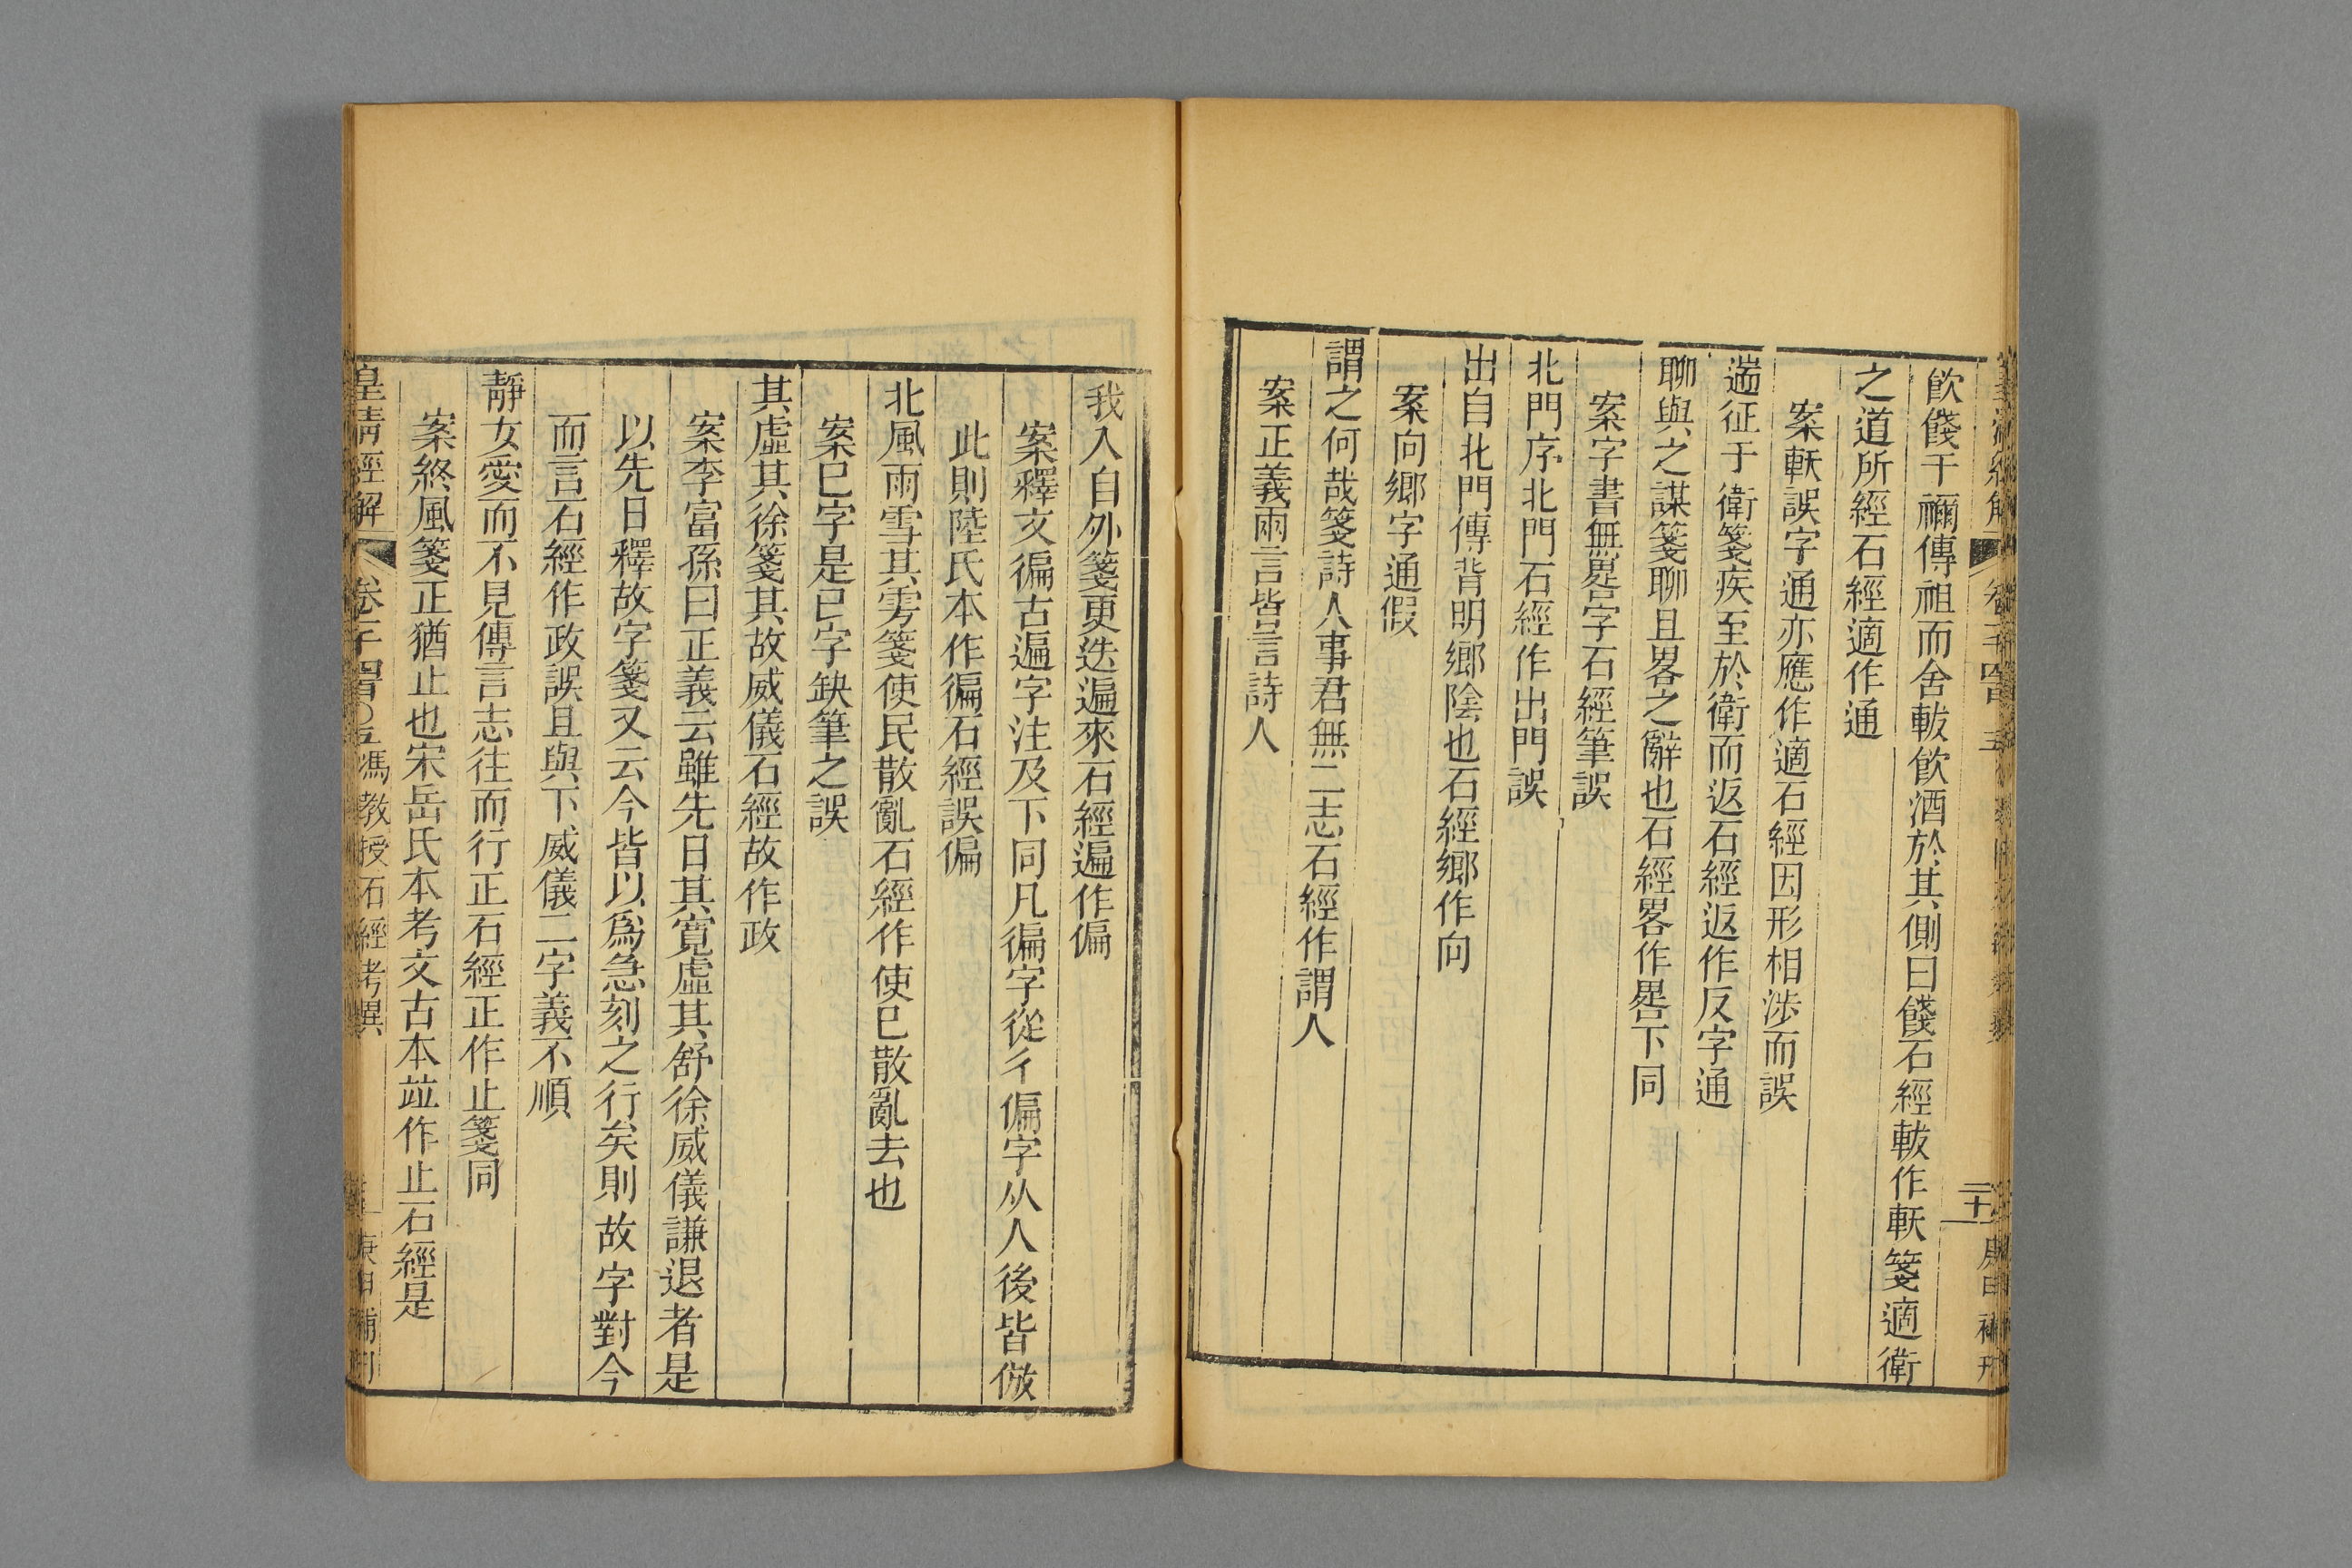 飮餞于禰傳祖而舍軷飮酒於其側曰餞石經軷作軼箋適衛
之道所經石經適作通
案軼誤字通亦應作適石經因形相涉而誤
遄征于衛箋疾至於衛而返石經返作反字通
聊與之謀箋聊且畧之辭也石經畧作畧下同
案字書無畧字石經筆誤
北門序北門石經作出門誤
出自北門傳背明鄉陰也石經鄉作向
案向鄉字通假
謂之何哉箋詩人事君無二志石經作謂人
案正義兩言皆言詩人
我入自外箋更迭遍來石經遍作偏
案釋文徧古遍字注及下同凡徧字從彳偏字从人後皆倣
此則陸氏本作徧石經誤偏
北風雨雪其雱箋使民散亂石經作使已散亂去也
案已字是民字缺筆之誤
其虛其徐箋其故威儀石經故作政
案李富孫曰正義云雖先日其寬虛其舒徐威儀謙退者是
以先日釋故字箋又云今皆以爲急刻之行矣則故字對今
而言石經作政誤且與下威儀二字義不順
靜女愛而不見傳言志往而行正石經正作止箋同
案終風箋正猶止也宋岳氏本考文古本竝作止石經是
皇清經解 馮教授石經考異